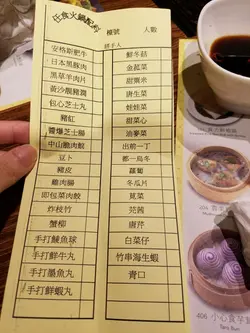 任食火鍋配料 檯號 人數
安格斯肥牛 鮮冬菇
日本黑豚肉 金菇菜
黑草羊肉片 甜粟米
黃沙潤 唐生菜
包心芝士丸 娃娃菜
豬紅 甜菜心
芝士腸 油麥菜
中山脆肉鯇 出前一丁
豆卜 都一烏冬
豬皮 蘿蔔
雞肉腸 冬瓜片
即包菜肉餃 莧菜
炸枝竹 芫茜
蟹柳 唐芹
手打鯪魚球 白菜仔
手打鮮牛丸 竹串海生蝦
手打墨魚丸 青口
手打鮮蝦丸